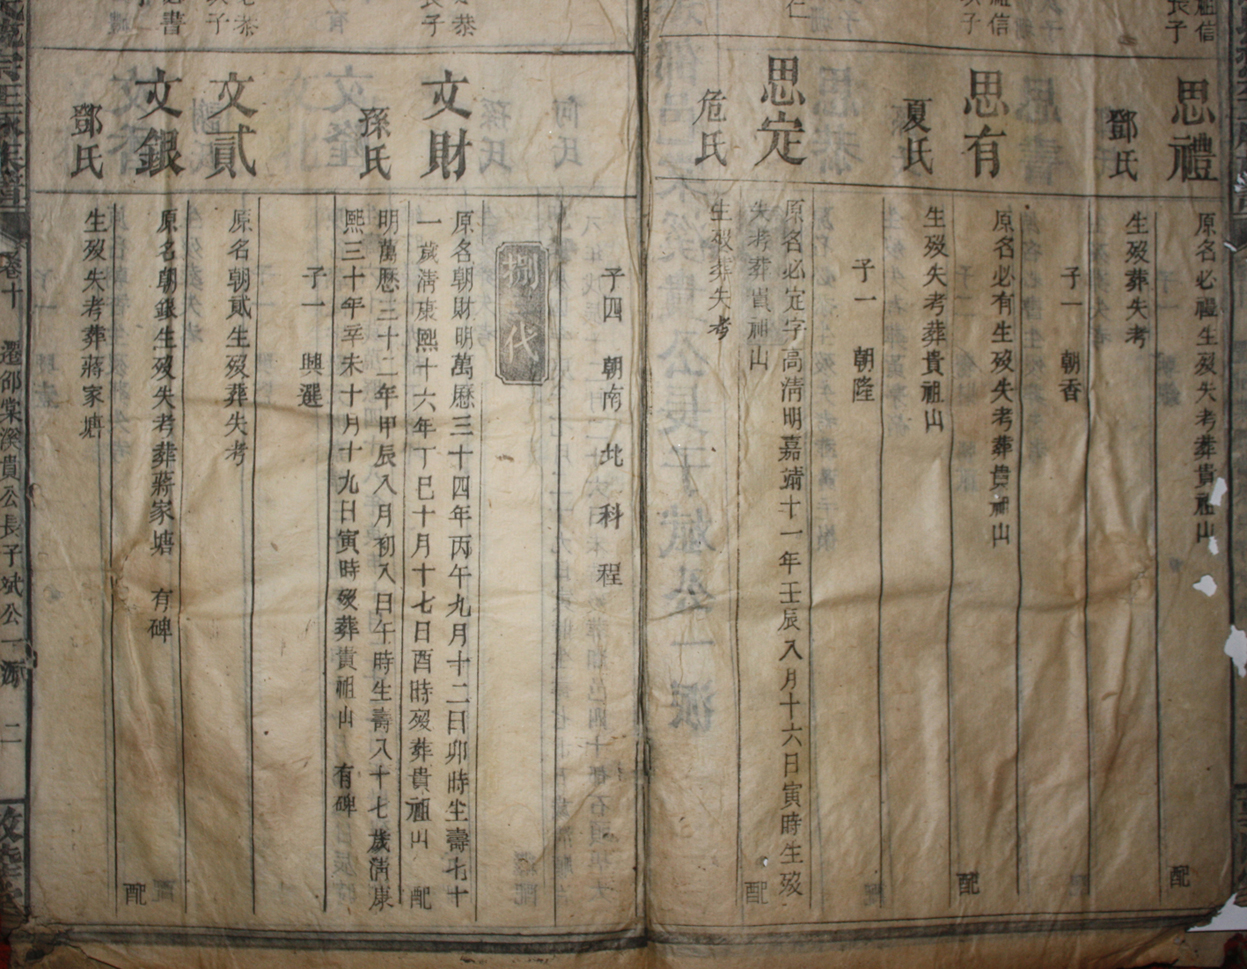 思禮
原名必禮生歿失考葬貴祖山
配
鄧氏
生歿葬失考
子一 朝香
思有
原名必有生歿失考葬貴祖山
配
夏氏
生歿失考葬貴祖山
子一 朝隆
思定
原名必定字高清明嘉靖十一年壬辰八月十六日寅時生歿
失考葬貴祖山
配
危氏
生歿葬失考
子四 朝南 北 科 程
捌一代
文財
原名朝財明萬歷三十四年丙午九月十二日卯時生壽七十
一歲清康熙十六年丁巳十月十七日酉時歿葬貴祖山 配
孫氏
明萬歷三十二年甲辰八月初八日午時生壽八十七歲清康
熙三十年辛未十月十九日寅時歿葬貴祖山 有碑
子一 興選
文貳
原名朝貳生歿葬失考
文銀
原名朝銀生歿失考葬蔣家塘 有碑
配
鄧氏
生歿失考葬蔣家塘
卷十 遷邵棠溪貴公長子斌公一派 二